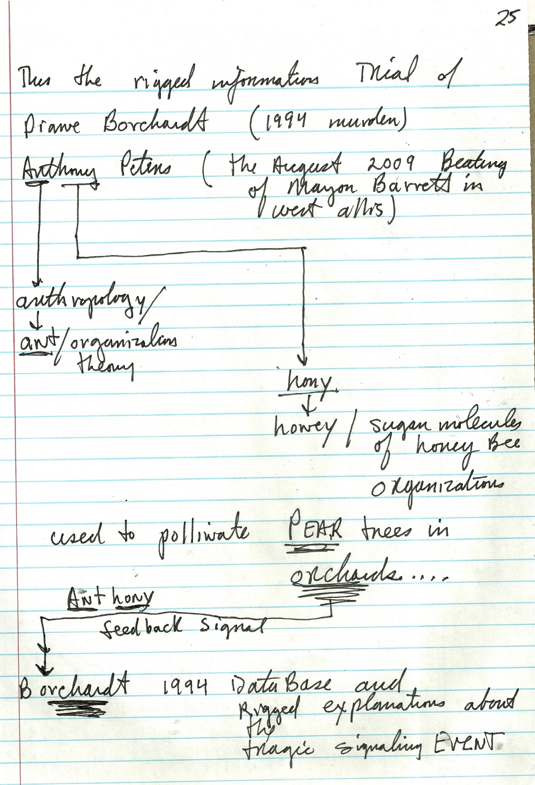 25
Thus the rigged information Trial of
Diane Borchardt (1994 murder)
Anthony Peters (the August 2009 Beating
of Mayor Barrett in
west allis)
anthropology/
ant/organization
theory
hony
honey / sugar molecules
of honey Bee
organizations
used to pollinate PEAR trees in
orchards....
Anthony
feedback signal
Borchardt 1994 DataBase and
Rigged explanations about
the
tragic signaling EVENT